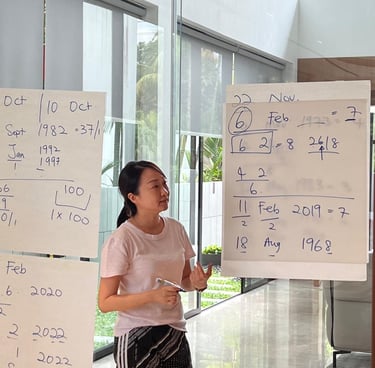 Oct 10 Oct
Sept 1982 = 37/1
Jan 1992
1 1997
100
1 x 100
Feb
6. 2020
2 2022
1 2022
22 Nov.
6 Feb = 7
6 2 = 8 26/8
4 2
6
11 Feb 2019 = 7
2 2
18 Aug 1968